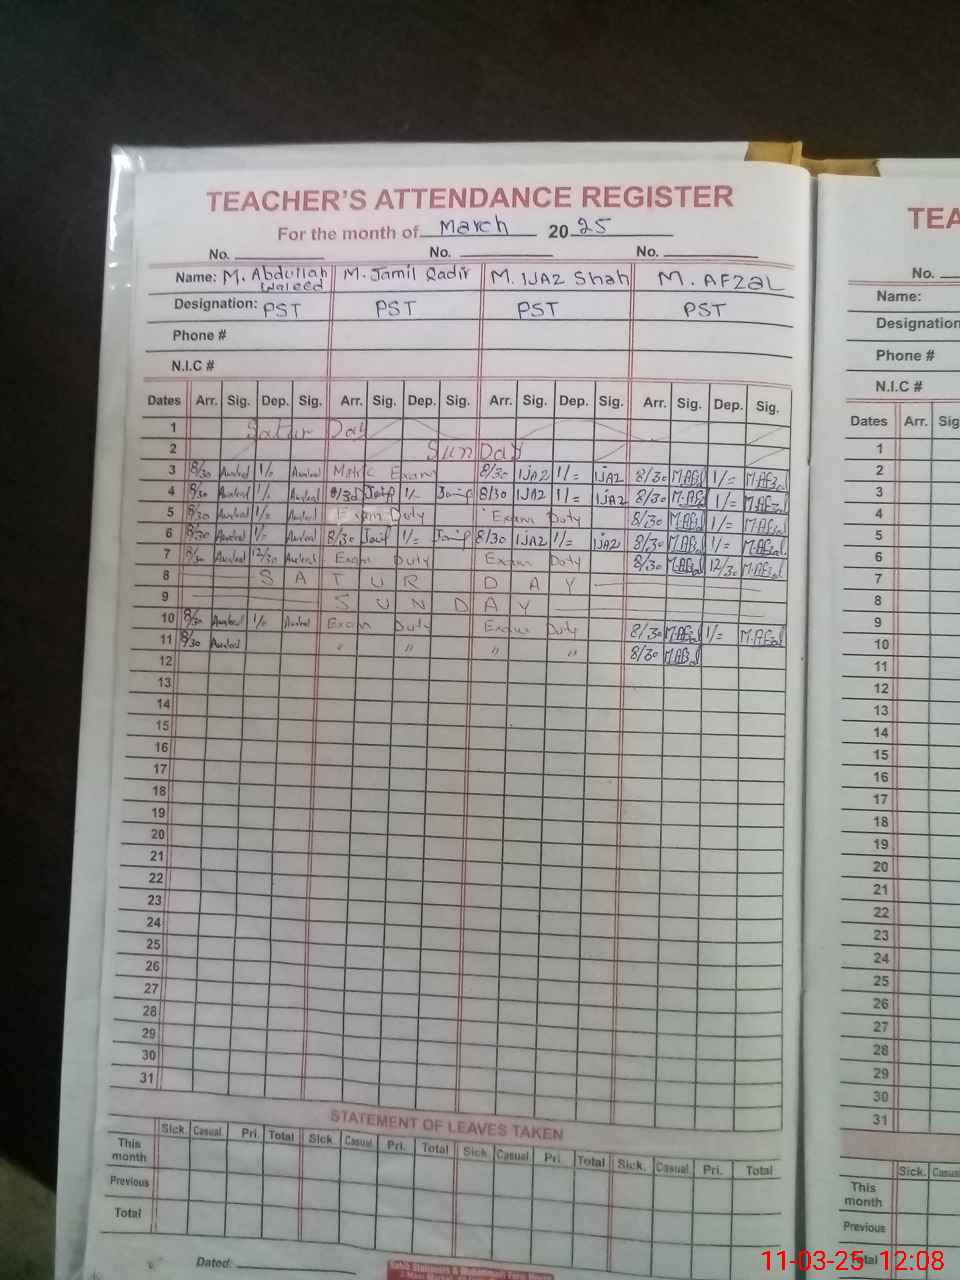 TEACHER'S ATTENDANCE REGISTER
For the month of March 2025
No. No. No.
Name: M. Abdullah Waleed M. Jamil Qadir M. IJAZ Shah M. AFZAL
Designation: PST PST PST PST
Phone #
N.I.C #
Dates Arr. Sig. Dep. Sig. Arr. Sig. Dep. Sig. Arr. Sig. Dep. Sig. Arr. Sig. Dep. Sig.
1 Satur Day
2 Sun Day
3 8/30 1/= Matric Exam 8/30 IJAZ 1/= IJAZ 8/30 M.Afzal 1/= M.Afzal
4 8/30 1/= 8/30 1/= 8/30 IJAZ 1/= IJAZ 8/30 M.Afzal 1/= M.Afzal
5 8/30 1/= Exam Duty Exam Duty 8/30 M.Afzal 1/= M.Afzal
6 8/30 1/= 8/30 1/= 8/30 IJAZ 1/= IJAZ 8/30 M.Afzal 1/= M.Afzal
7 8/30 12/30 Exam Duty Exam Duty 8/30 M.Afzal 12/30 M.Afzal
8 S A T U R D A Y
9 S U N D A Y
10 8/30 1/= Exam Duty Exam Duty 8/30 M.Afzal 1/= M.Afzal
11 8/30 " " " " 8/30 M.Afzal
12
13
14
15
16
17
18
19
20
21
22
23
24
25
26
27
28
29
30
31
STATEMENT OF LEAVES TAKEN
Sick. Casual. Pri. Total Sick. Casual. Pri. Total Sick. Casual. Pri. Total Sick. Casual. Pri. Total
This month
Previous
Total
Dated:
TEA
No.
Name:
Designation
Phone #
N.I.C #
Dates Arr. Sig
1
2
3
4
5
6
7
8
9
10
11
12
13
14
15
16
17
18
19
20
21
22
23
24
25
26
27
28
29
30
31
Sick. Casua
This month
Previous
Total
11-03-25 12:08